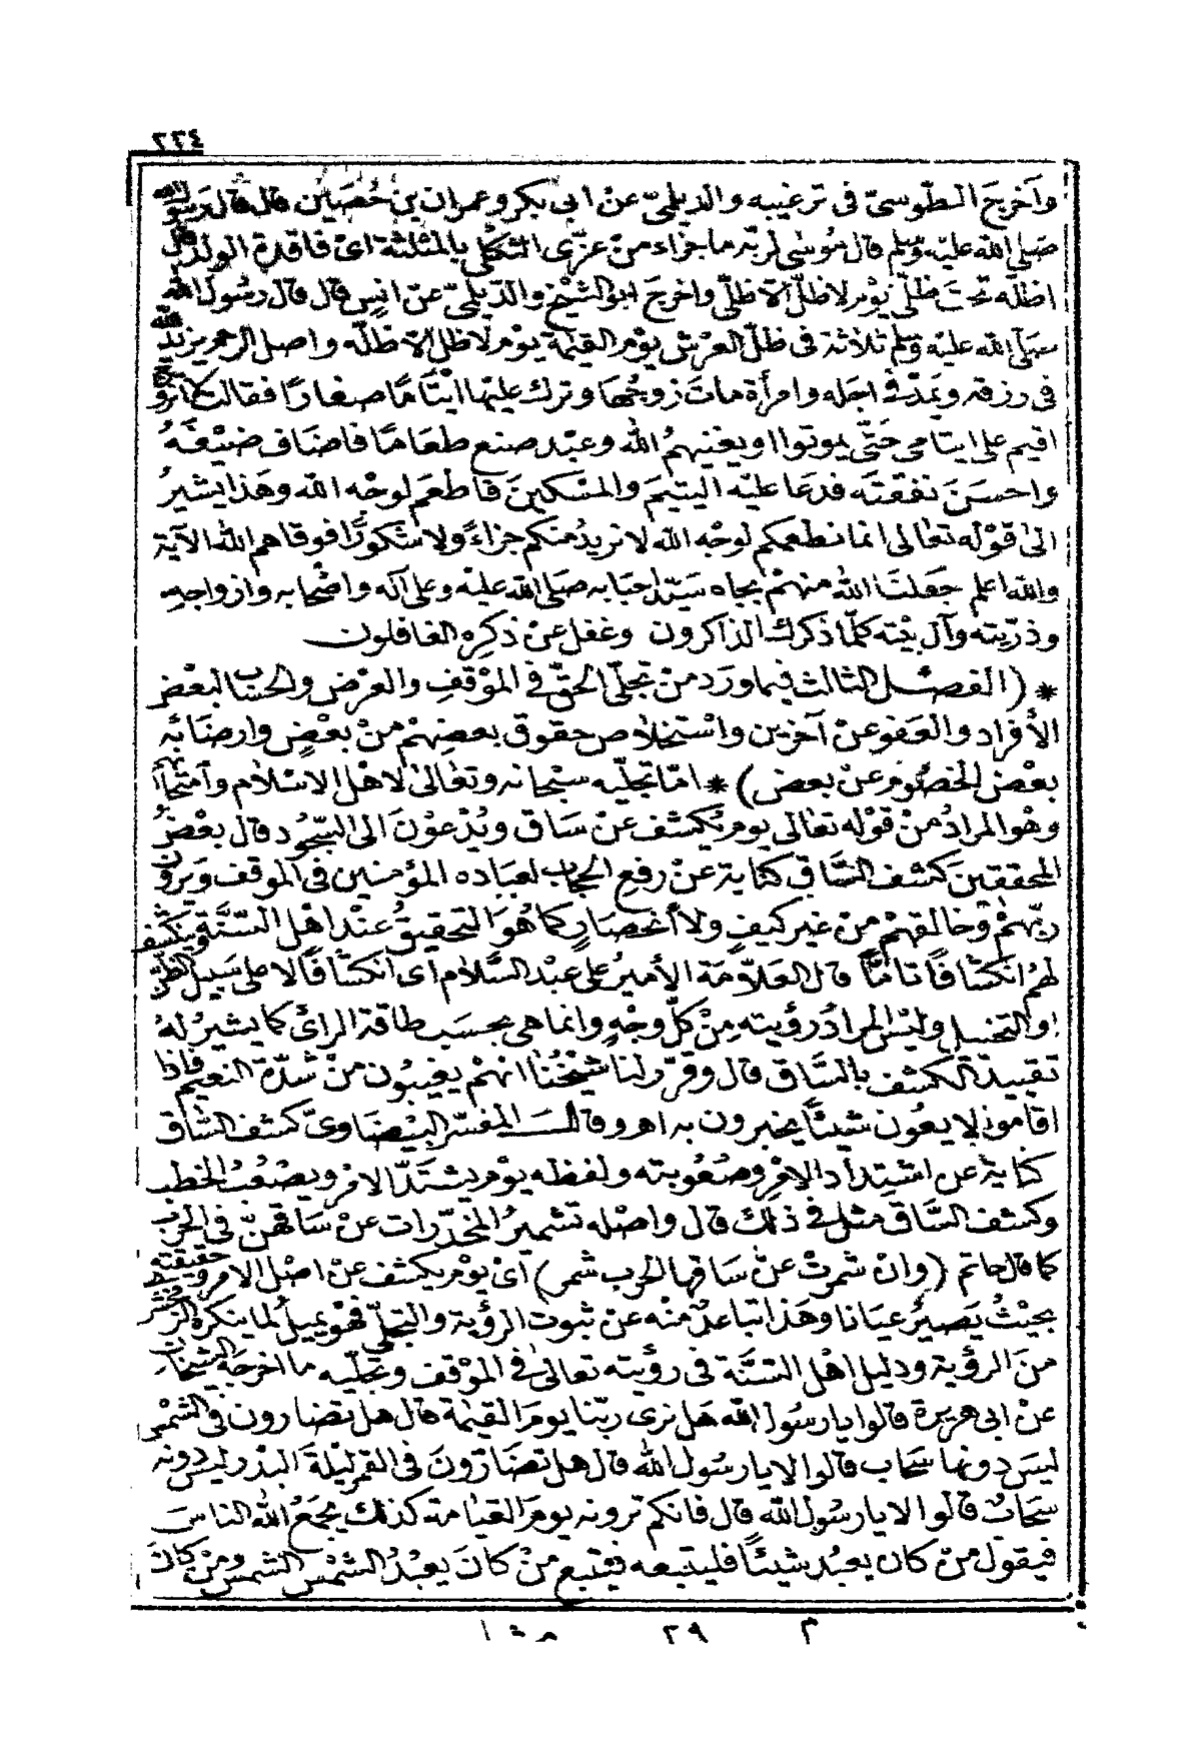 ٢٢٤
وأخرج الطّوسيّ فى ترغيبه والديلميّ عن ابى بكر وعمران بن حُصَيْن قال قال رسول الله
صلى الله عليه وسلم قال مُوسٰى لربّه ما جزاء من عزّى الثكلى بالمثلثة اى فاقدة الولد قال
اظلّه تحتَ ظلّى يوْم لا ظلّ الا ظلّى واخرجَ ابو الشيْخ والدّيلميّ عن انسٍ قال قال رسُول الله
صلّى الله عليْه وسلّم ثلاثة فى ظلّ العرْش يوْم القيٰمة يوْم لا ظل الا ظلّه واصل الرحم يزيد الله
فى رزقه ويمدّ فى اجَله وامرأة ماتَ زوجُها وترك عليْها ايْتامًا صغارًا فقالت لا اتزوج
اقيم على ايتامى حَتّى يموتوا او يغنيهمُ الله وعبْد صنع طعَامًا فاضَاف ضيْفَهُ
واحسَنَ نفقتَه فدعَا عليْه اليتيمَ والمسْكينَ فاطْعمَ لوجْه الله وهَذا يشيرُ
الىٰ قوْله تعَالى انما نطعمكم لوجْه الله لا نريدُ منكم جزاءً ولا شكورًا فوقاهم الله الآية
والله اعلم جَعلنَا الله منهمْ بجاه سَيّد احبَابه صَلى الله عليْه وعلى آله واصْحابه وازواجه
وذرّيته وآل بيْته كلّما ذكرك الذاكرون وغفل عنْ ذكرِه الغافلون
* (الفصْل الثالث فيما ورَد منْ تجلّى الحقّ فى الموْقفِ والعرْض والحسَاب لبعْض
الأفراد والعَفو عنْ آخرين واسْتخلاص حقوق بعضِهمْ منْ بعْضٍ وارضَائه
بعْض الخصُوم عنْ بعض) * امّا تجلّيه سبْحانه وتعَالىٰ لاهْل الاسْلام وامتحانهم
وهُو المرادُ منْ قوْله تعَالى يوم يُكشف عنْ سَاق ويُدْعوْنَ الى السّجُود قال بعْضُ
المحققينَ كشف السَّاق كناية عنْ رفع الحجَاب لعبَاده المؤمنين فى الموْقف ويَروْن
ربّهمْ وخالقهمْ منْ غير كيفٍ ولا أنحصَارٍ كما هُو التحقيقُ عنْد اهْل السّنَّة وينكشف
لهُمُ انكشافًا تامًّا قال العَلاّمَة الأميرُ على عبْد السَّلام أى انكشافًا لا على سَبيل الظنّ
او التخيل وليْسَ المرادُ رؤيته مِنْ كلّ وجْهٍ وانما هى بحسَب طاقة الرائ كما يشيرُ لهُ
تقييد الكشف بالسَّاق قال وقرّر لنا شيْخُنا انهمْ يغيبُون منْ شدّة النعيم فاذا
اقاموا لا يعُون شيئًا يخبرون به اهـ وقال المفسّر البيْضَاوىّ كشف السَّاق
كناية عن اشتِداد الامْرِ وصُعُوبته ولفظه يوْم يشتدّ الامْر ويصْعُبُ الخطب
وكشف السَّاق مثل فى ذلك قال واصْله تشميرُ المخدّرات عنْ سَاقهنّ فى الحرْب
كما قال حاتم (وانْ شمرتْ عنْ سَاقها الحرْب شمرا) أىْ يوْم يكشف عنْ اصْل الامر وحقيقته
بحيْثُ يَصيرُ عيَانا وهَذا تباعدٌ منْه عنْ ثبوت الرؤية والتجلّى فهُو يميل لما ينكره الزمخشرى
منَ الرؤية ودليل اهْل السّنَّة فى رؤيته تعَالىٰ فى الموْقف وتجلّيه ما اخرجَه الشيخان
عنْ ابى هريرة قالوا يا رسُول الله هَل نرى ربّنا يومَ القيٰمة قال هل تضارون فى الشمْس
ليسَ دونها سَحَاب قالوا لا يا رسُول الله قال هل تضَارّونَ فى القمر ليْلةَ البدْر ليس دونه
سَحابٌ قالوا لا يا رسُول الله قال فانكم ترونه يومَ القيامة كذلك يجْمَعُ الله الناسَ
فيقول منْ كان يعبُد شيئًا فليتبعه فيتّبع منْ كانَ يعبُدُ الشمْسَ الشمسَ ومنْ كانَ
م ٢٩ مشا